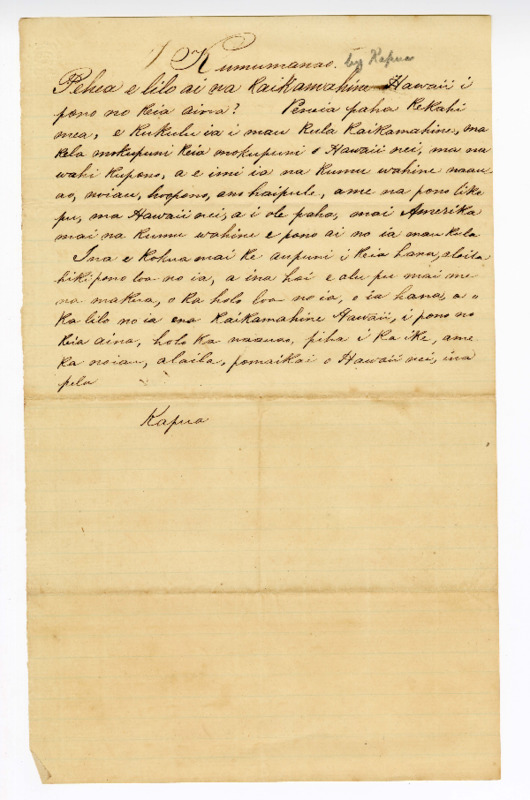 1 Kumumanao. by Kapua
Pehea e lilo ai na kaikamahine Hawaii i
pono no keia aina? Peneia paha kekahi
mea, e kukulu ia i mau kula kaikamahine, ma
kela mokupuni keia mokupuni o Hawaii nei, ma na
wahi kupono, a e imi ia na kumu wahine naau-
ao, noiau, hoopono, ano haipule, ame na pono like
pu, ma Hawaii nei, a i ole paha, mai Amerika
mai na kumu wahine e pono ai no ia mau kula
Ina e kokua mai ke aupuni i keia hana, alaila
hiki pono loa no ia, a ina hoi e alu pu mai me
na makua, o ka holo loa no ia, o ia hana, a "
ka lilo no ia ona kaikamahine Hawaii, i pono no
keia aina, holo ka naauao, piha i ka ike, ame
ka noiau, alaila, pomaikai o Hawaii nei, ina
pela
Kapua